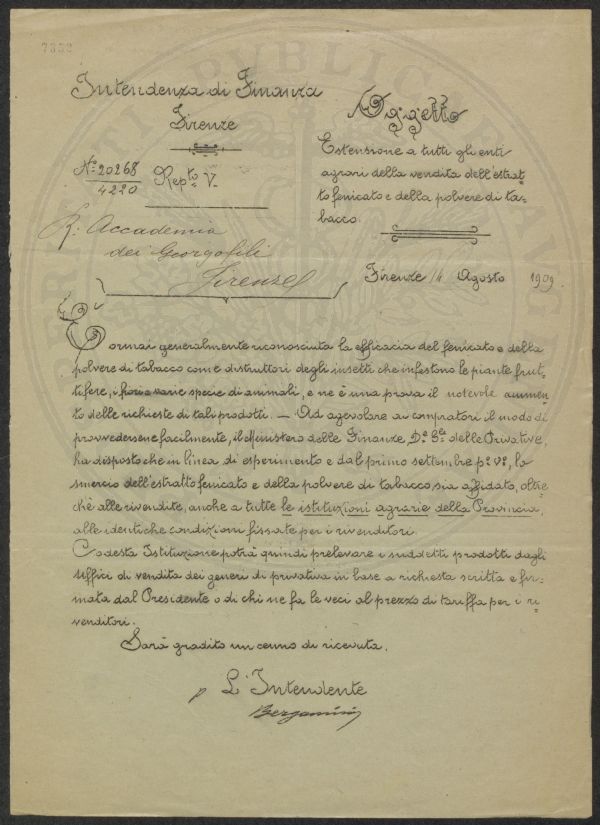 7332
Intendenza di Finanza
Firenze
N.° 20268 Rep.to V.
4220
Oggetto
Estensione a tutti gli enti
agrari della vendita dell'estrat-
to fenicato e della polvere di ta-
bacco.
R. Accademia
dei Georgofili
Firenze
Firenze 14 Agosto 1909.
È ormai generalmente riconosciuta la efficacia del fenicato e della
polvere di tabacco come distruttori degli insetti che infestono le piante frut-
tifere, i fiori e varie specie di animali, e ne è una prova il notevole aumen-
to delle richieste di tali prodotti. — Ad agevolare ai compratori il modo di
provvedersene facilmente, il Ministero delle Finanze D.e G.le delle Privative,
ha disposto che in linea di esperimento e dal primo settembre p.° v.°, lo
smercio dell'estratto fenicato e della polvere di tabacco sia affidato, oltre-
chè alle rivendite, anche a tutte le istituzioni agrarie della Provincia,
alle identiche condizioni fissate per i rivenditori.
Codesta Istituzione potrà quindi prelevare i suddetti prodotti dagli
Uffici di vendita dei generi di privativa in base a richiesta scritta e fir-
mata dal Presidente o di chi ne fa le veci al prezzo di tariffa per i ri-
venditori.
Sarà gradito un cenno di ricevuta.
p L'Intendente
Bergamini